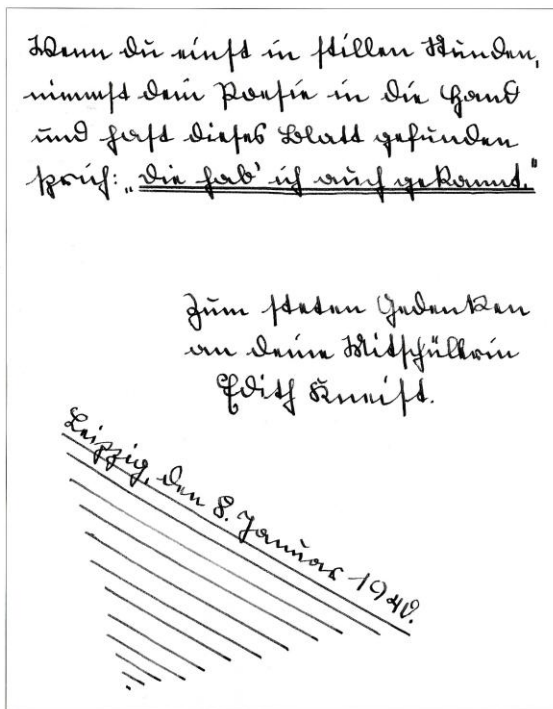 Wenn du einst in stillen Stunden,
nimmst dein Poesie in die Hand
und hast dieses Blatt gefunden
sprich: „Die hab' ich auch gekannt."
Zum steten Gedenken
an deine Mitschüllerin
Edith Kneist.
Leipzig, den 8. Januar 1940.